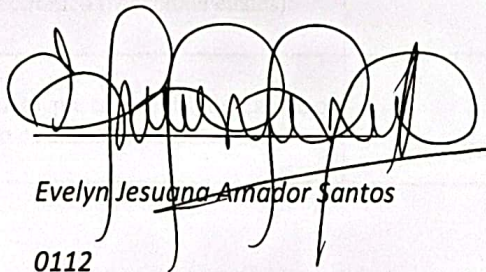 Evelyn Jesuana Amador Santos
0112